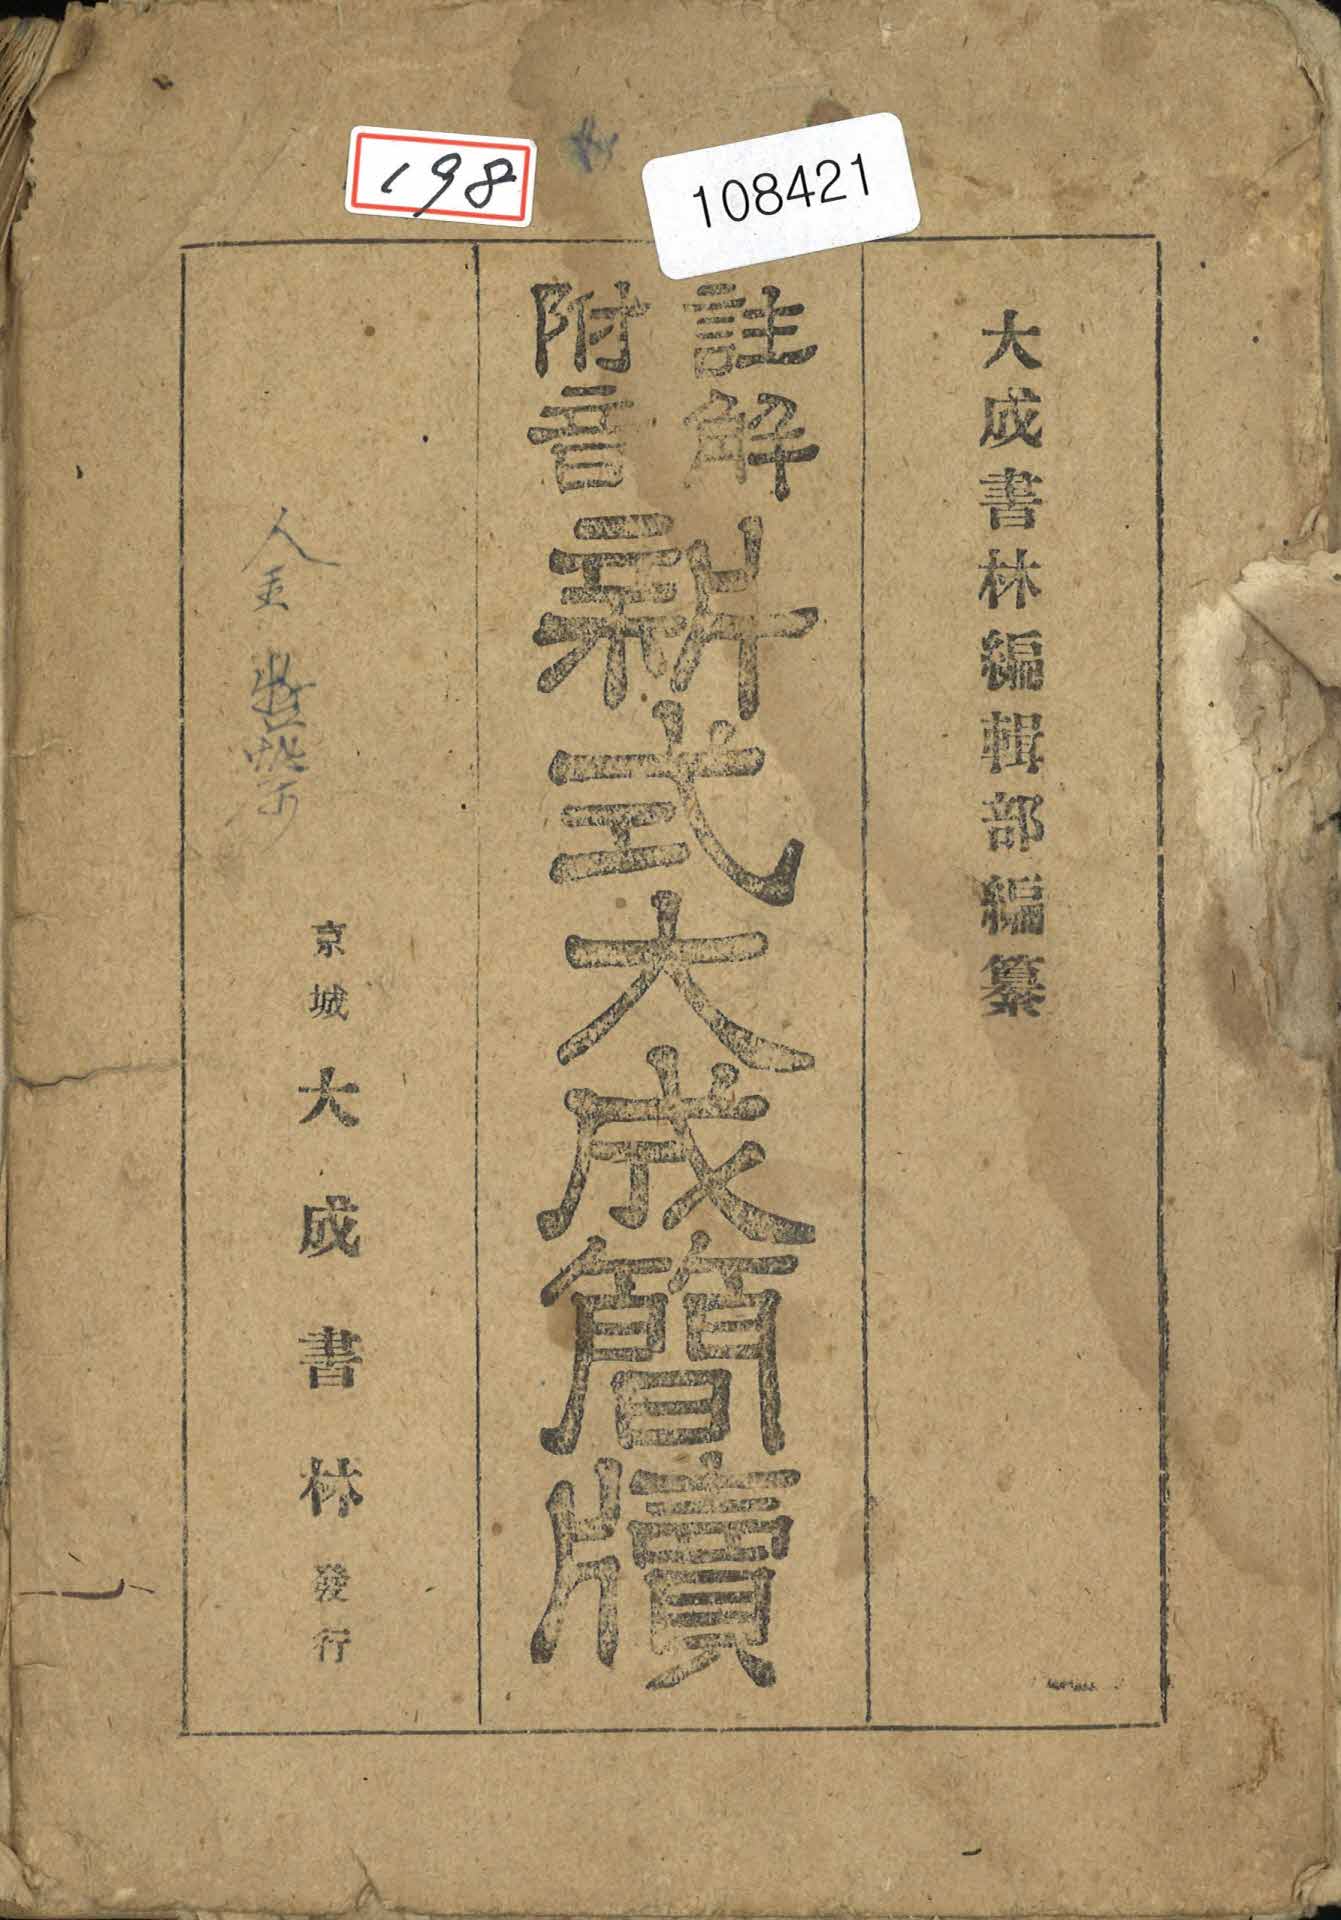 198
108421
大成書林編輯部編纂
註解
附音
新式大成簡牘
金
京城大成書林發行